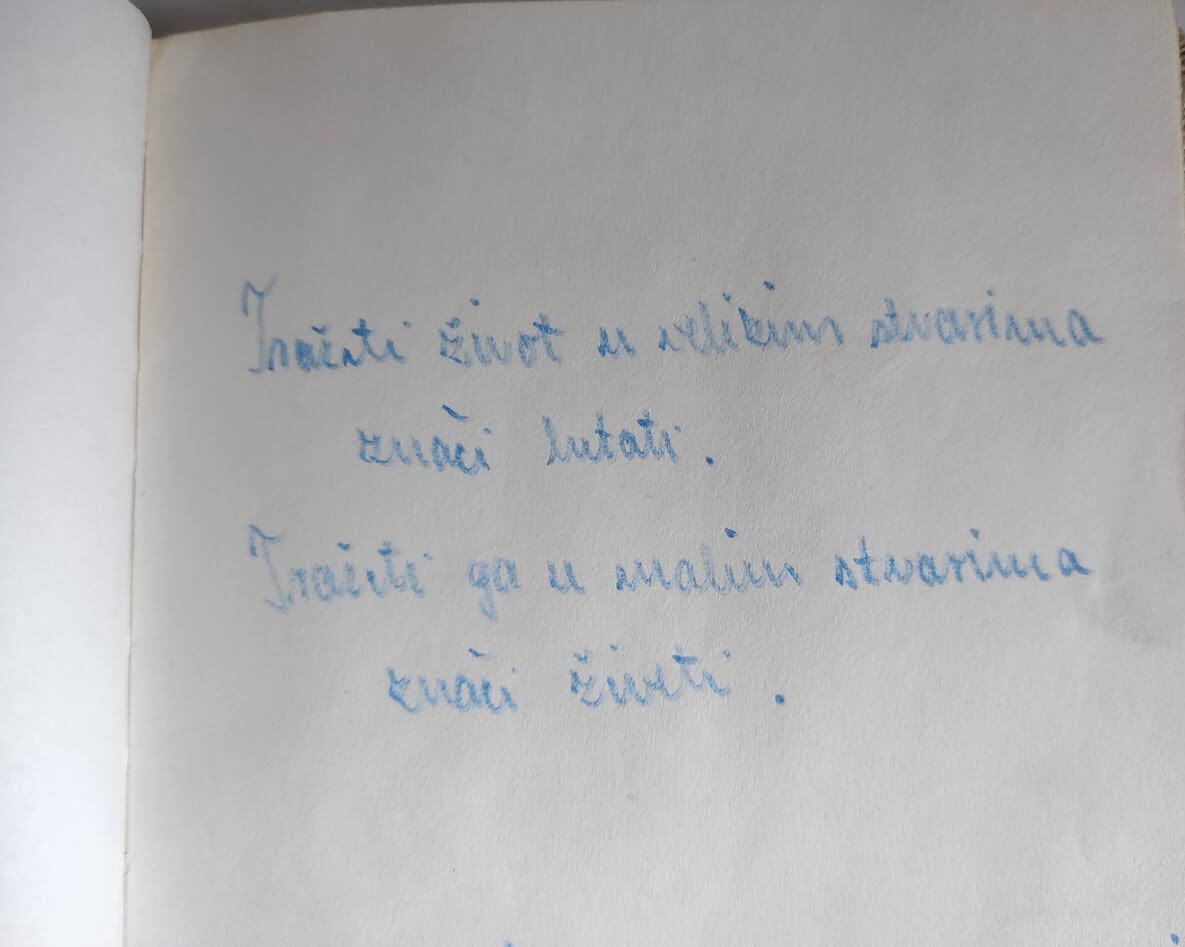 Tražiti život u velikim stvarima
znači lutati.
Tražiti ga u malim stvarima
znači živeti.